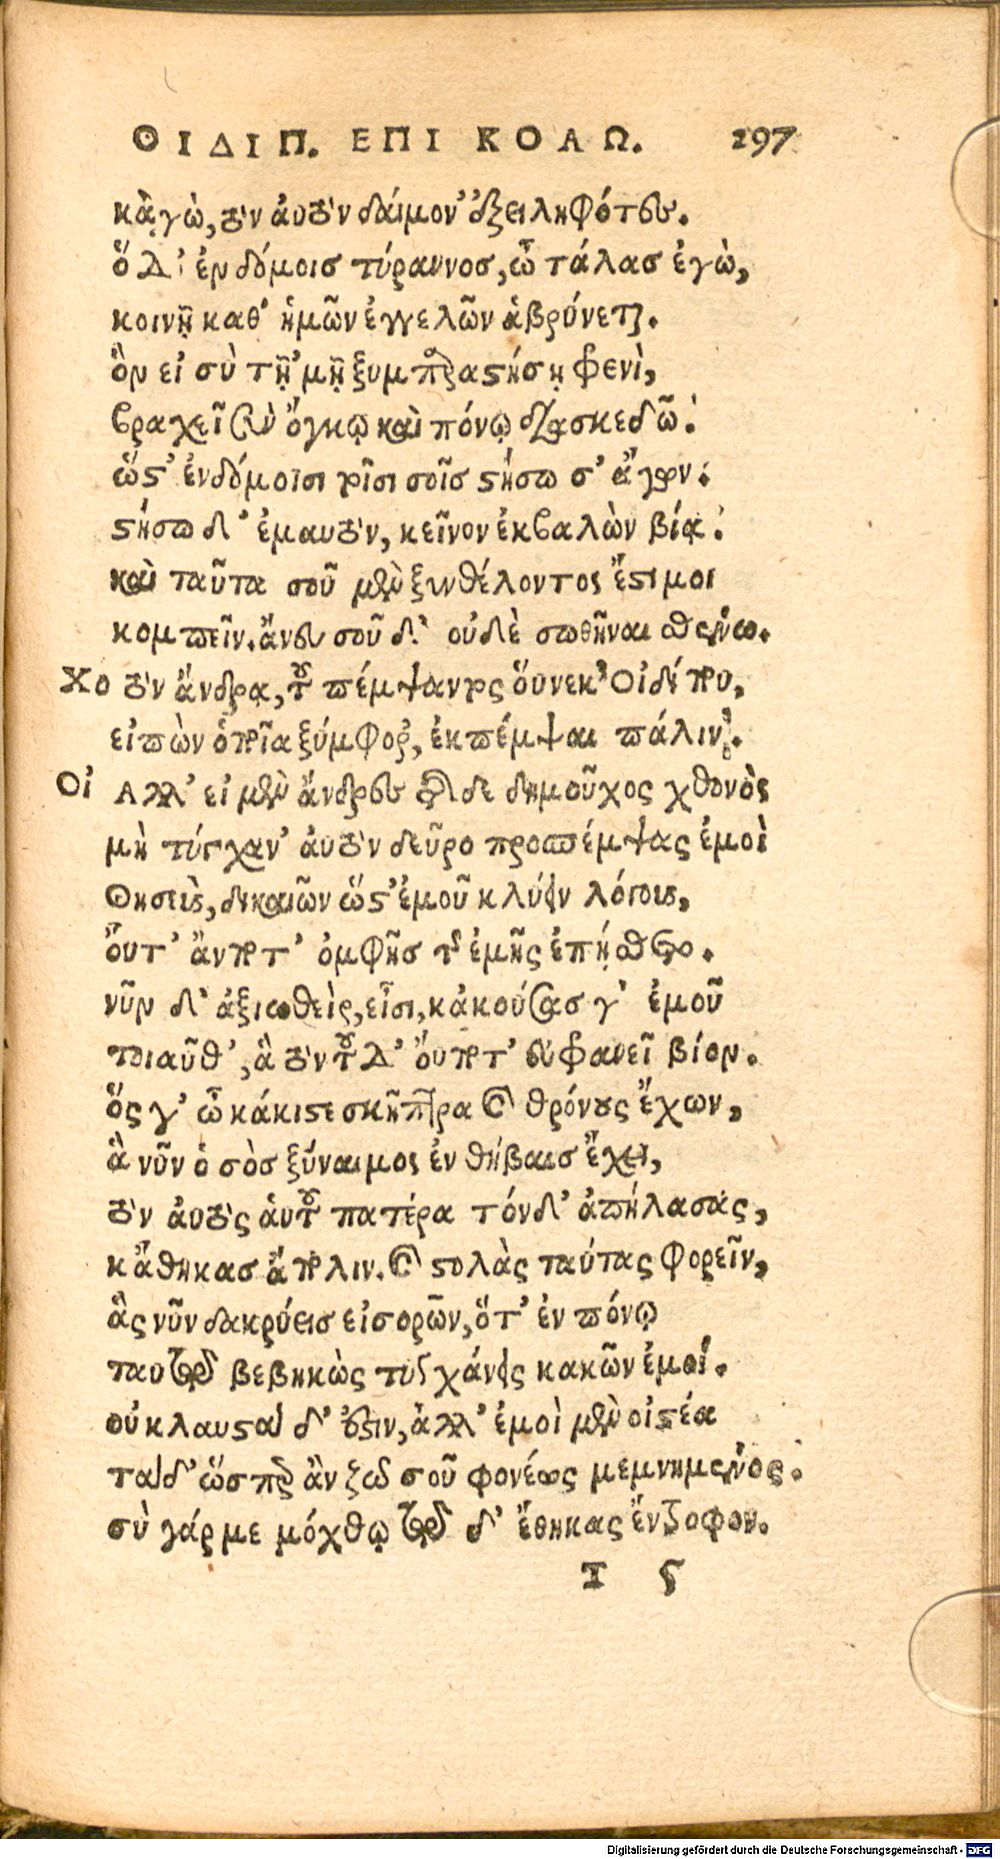 ΟΙΔΙΠ. ΕΠΙ ΚΟΛΩ. 297
κᾀγὼ, τὸν ἀυτὸν δάιμον' ἐξειληφότες.
ὅ δ' ἐν δόμοισ τύραννοσ, ὦ τάλασ ἐγὼ,
κοινῇ καθ' ἡμῶν ἐγγελῶν ἁβρύνεται.
ὃν εἰ σὺ τῇ 'μῇ ξυμπαραστήσῃ φρενὶ,
βραχεῖ σὺν ὄγκῳ καὶ πόνῳ διασκεδῶ.
ὥστ' ἐν δόμοισι τοῖσι σοῖσ στήσω σ' ἄγων.
στήσω δ' ἐμαυτὸν, κεῖνον ἐκβαλὼν βίᾳ.
καὶ ταῦτα σοῦ μὲν ξυνθέλοντος ἔστι μοι
κομπεῖν. ἄνευ σοῦ δ' οὐδὲ σωθῆναι σθένω.
Χο τὸν ἄνδρα, τοῦ πέμψαντος ὅυνεκ' Οἰδίπου,
εἰπὼν ὁποῖα ξύμφορ', ἐκπέμψαι πάλιν.
Οἰ Αλλ' εἰ μὲν ἄνδρες τῆσδε δημοῦχος χθονὸς
μὴ τύγχαν' ἀυτὸν δεῦρο προσπέμψας ἐμοὶ
Θησεὺς, δικαιῶν ὥστ' ἐμοῦ κλύειν λόγους,
ὄυτ' ἄν ποτ' ὀμφῆσ τῆς ἐμῆς ἐπῄσθετο.
νῦν δ' ἀξιωθεὶς, εἶσι, κἀκούσασ γ' ἐμοῦ
τοιαῦθ', ἃ τὸν τοῦδ' ὄυποτ' ἐυφρανεῖ βίον.
ὅς γ' ὦ κάκιστε σκῆπτρα καὶ θρόνους ἔχων,
ἃ νῦν ὁ σὸσ ξύναιμος ἐν θήβαισ ἔχει,
τὸν ἀυτὸς ἁυτοῦ πατέρα τόνδ' ἀπήλασας,
κἄθηκασ ἄπολιν. καὶ στολὰς ταύτας φορεῖν,
ἃς νῦν δακρύεισ εἰσορῶν, ὅτ' ἐν πόνῳ
ταυτῷ βεβηκὼς τυγχάνεις κακῶν ἐμοί.
οὐ κλαυστὰ δ' ἐστιν, ἀλλ' ἐμοὶ μὲν οἰστέα
τάδ' ὥσπερ ἂν ζῶ σοῦ φονέως μεμνημένος.
σὺ γάρ με μόχθῳ τῷδ' ἔθηκας ἔντροφον.
T 5
Digitalisierung gefördert durch die Deutsche Forschungsgemeinschaft - DFG